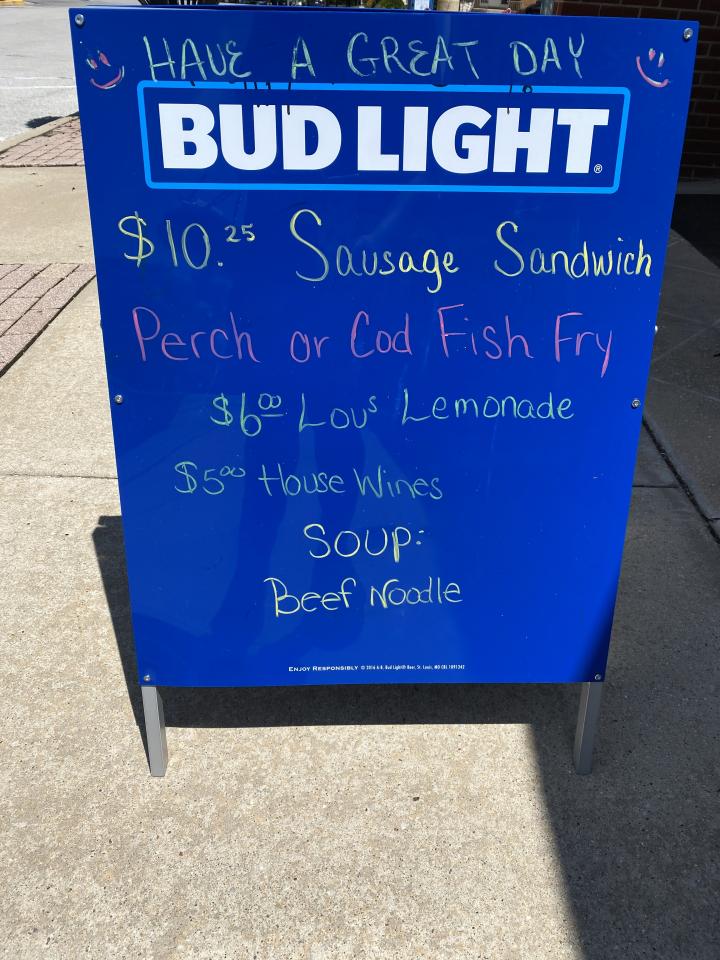 HAVE A GREAT DAY
BUD LIGHT®
$10.25 Sausage Sandwich
Perch or Cod Fish Fry
$600 Lou's Lemonade
$500 House Wines
SOUP:
Beef Noodle
ENJOY RESPONSIBLY © 2016 A-B, Bud Light® Beer, St. Louis, MO